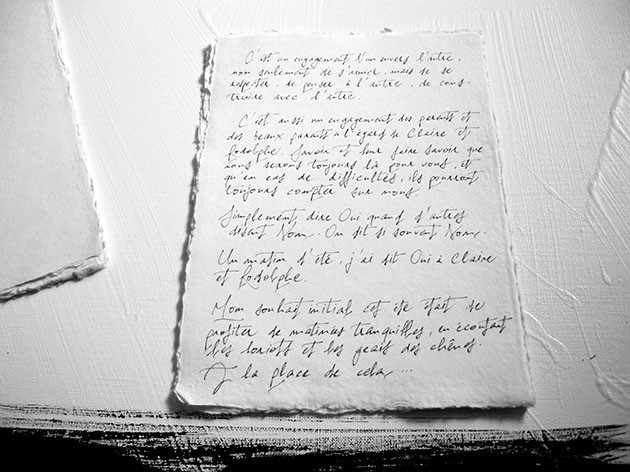 C'est un engagement l'un envers l'autre,
non seulement de s'aimer, mais de se
respecter, de penser à l'autre, de cons-
truire avec l'autre.
C'est aussi un engagement des parents et
des beaux parents à l'égard de Claire et
Rodolphe. Savoir et leur faire savoir que
nous serons toujours là pour vous, et
qu'en cas de difficultés, ils pourront
toujours compter sur nous.
Simplement dire Oui quand d'autres
disent Non. On dit si souvent Non.
Un matin d'été, j'ai dit Oui à Claire
et Rodolphe.
Mon souhait initial cet été était de
profiter de matinées tranquilles, en écoutant
les loriots et les geais des chênes.
A la place de cela ...